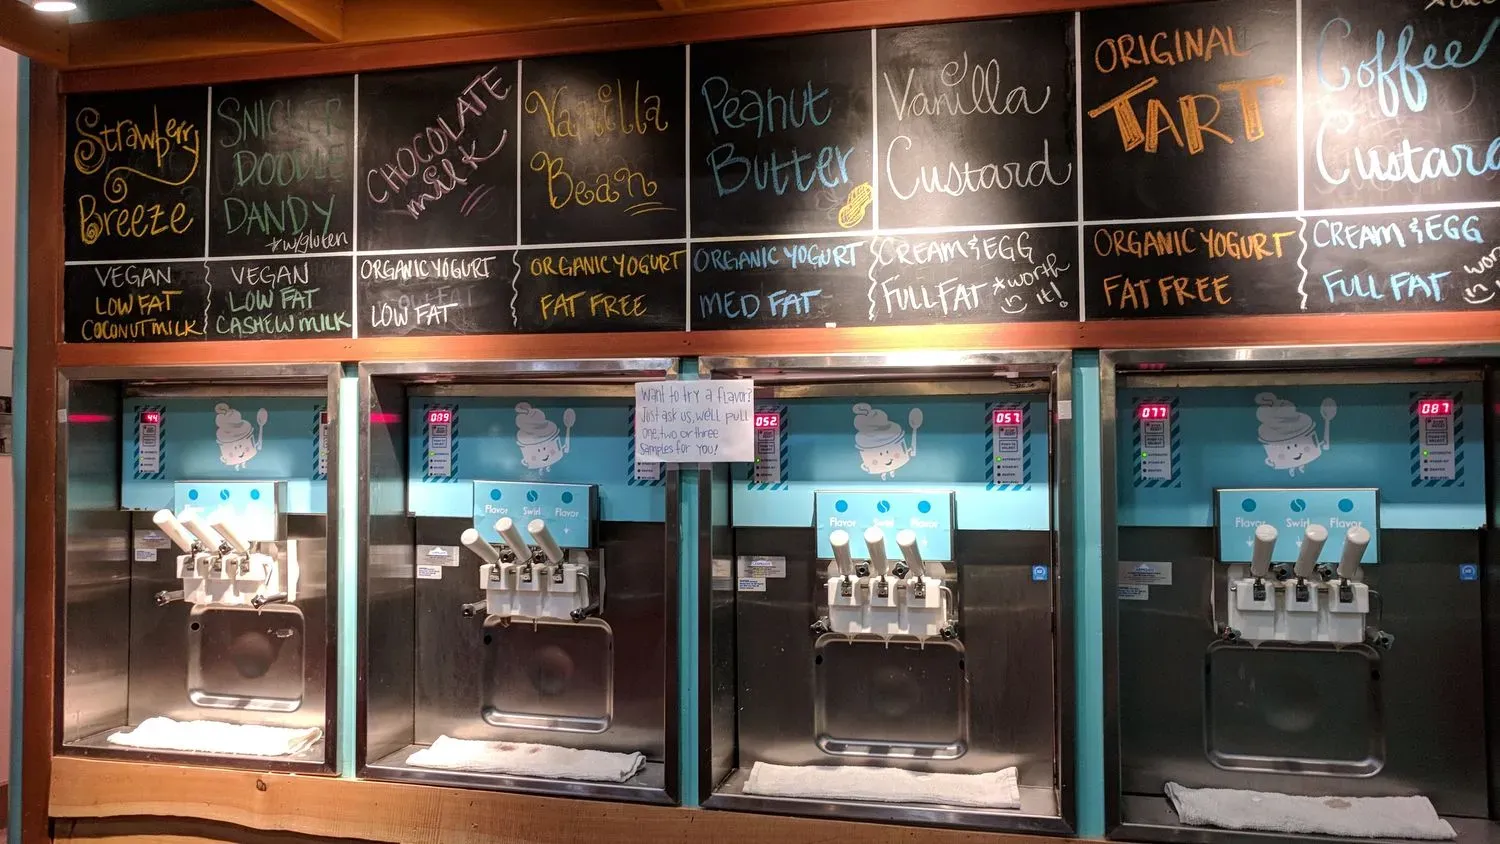 Strawberry
Breeze
VEGAN
LOW FAT
COCONUT MILK
SNICKER
DOODLE
DANDY
*w/gluten
VEGAN
LOW FAT
CASHEW MILK
CHOCOLATE
milk
ORGANIC YOGURT
LOW FAT
Vanilla
Bean
ORGANIC YOGURT
FAT FREE
Peanut
Butter
ORGANIC YOGURT
MED FAT
Vanilla
Custard
CREAM & EGG
FULL FAT *worth
it!
ORIGINAL
TART
ORGANIC YOGURT
FAT FREE
Coffee
Custard
CREAM & EGG
FULL FAT
Want to try a flavor?
Just ask us, we'll pull
one, two or three
samples for you!
44
089
052
057
077
087
Flavor Swirl Flavor
Flavor Swirl Flavor
Flavor Swirl Flavor